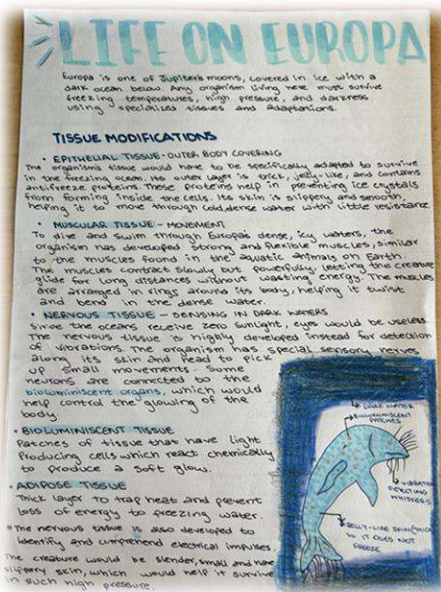 LIFE ON EUROPA
Europa is one of Jupiter's moons, covered in ice with a
dark ocean below. Any organism living here must survive
freezing temperatures, high pressure, and darkness
using specialized tissues and adaptations.
TISSUE MODIFICATIONS
• EPITHELIAL TISSUE - OUTER BODY COVERING
The organisms tissue would have to be specifically adapted to survive
in the freezing ocean. Its outer layer is thick, jelly-like, and contains
antifreeze proteins. These proteins help in preventing ice crystals
from forming inside the cells. Its skin is slippery and smooth,
helping it to move through cold, dense water with little resistance.
• MUSCULAR TISSUE - MOVEMENT
To dive and swim through Europa's dense, icy waters, the
organism has developed strong and flexible muscles, similar
to the muscles found in the aquatic animals on Earth.
The muscles contract slowly but powerfully letting the creature
glide for long distances without wasting energy. The muscles
are arranged in rings around its body, helping it twist
and bend in the dense water.
• NERVOUS TISSUE - SENSING IN DARK WATERS
Since the oceans receive zero sunlight, eyes would be useless.
The nervous tissue is highly developed instead for detection
of vibrations. The organism has special sensory nerves
along its skin and head to pick
up small movements. Some
neurons are connected to the
bioluminiscent organs, which would
help control the glowing of the
body.
• BIOLUMINISCENT TISSUE
Patches of tissue that have light
producing cells which react chemically
to produce a soft glow.
• ADIPOSE TISSUE
Thick layer to trap heat and prevent
loss of energy to freezing water.
* The nervous tissue is also developed to
identify and comprehend electrical impulses.
The creature would be slender, small and have
slippery skin, which would help it survive
in such high pressure.
DARK WATER
BIOLUMINISCENT
PATCHES
VIBRATION
DETECTING
WHISKERS
JELLY-LIKE SKIN/THICK
SO IT DOES NOT
FREEZE